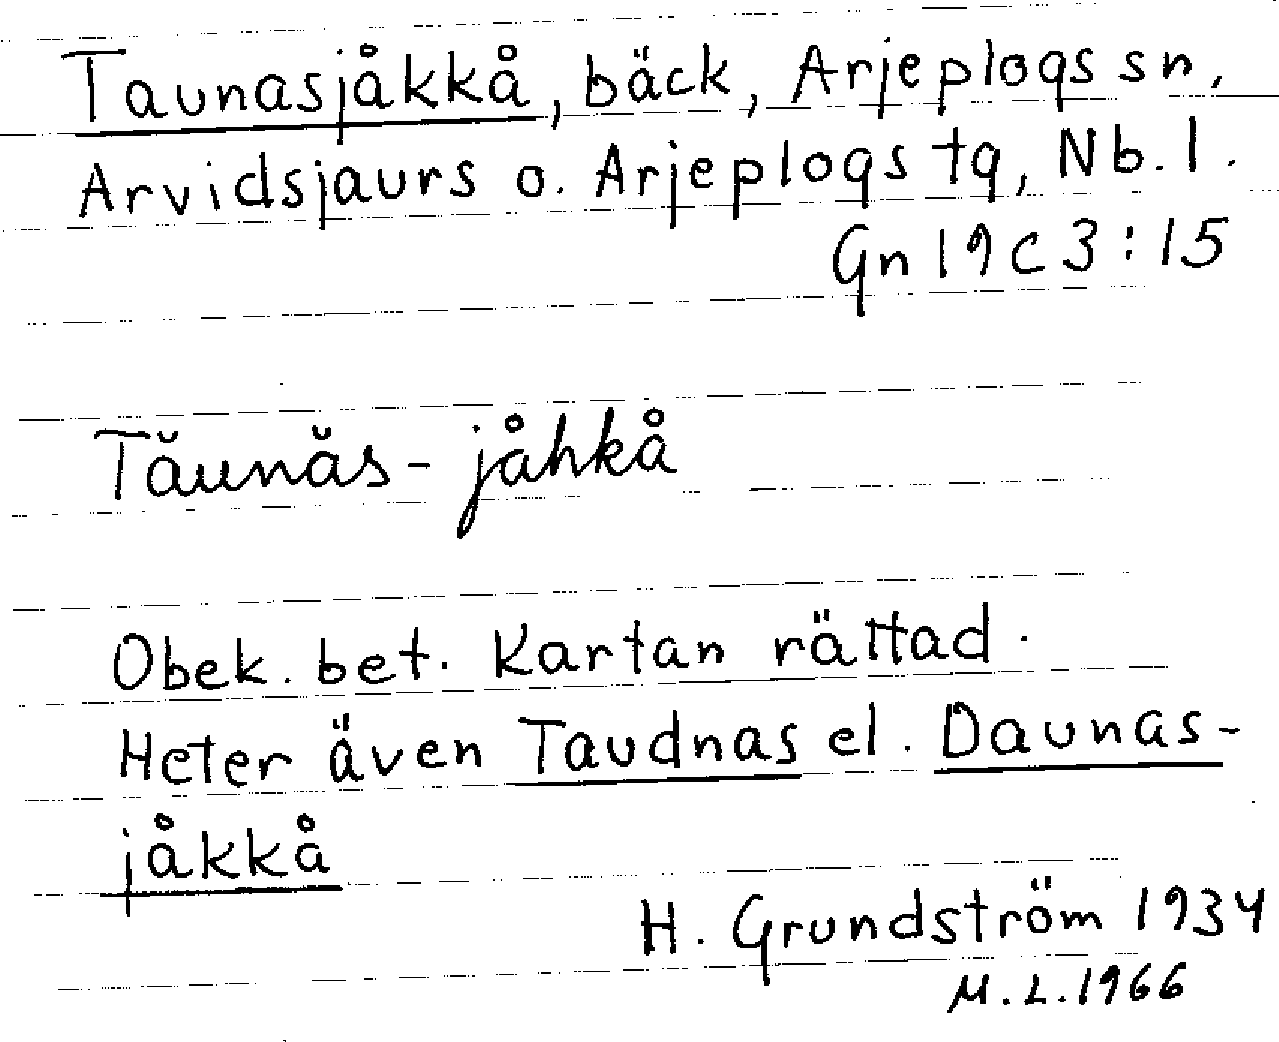 Taunasjåkkå, bäck, Arjeplogs sn,
Arvidsjaurs o. Arjeplogs tg, Nb. l.
Gn 19 c 3:15
Tăunăs-jåhkå
Obek. bet. Kartan rättad.
Heter även Taudnas el. Daunas-
jåkkå
H. Grundström 1934
M.L.1966